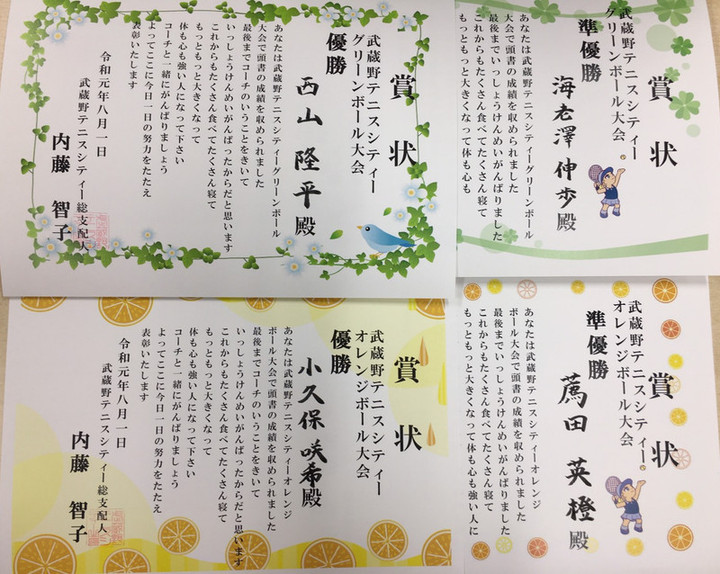 賞状
武蔵野テニスシティー
グリーンボール大会
優勝
西山 隆平殿
あなたは武蔵野テニスシティグリーンボール
大会で頭書の成績を収められました
最後までコーチのいうことをきいて
いっしょうけんめいがんばったからだと思います
これからもたくさん食べてたくさん寝て
もっともっと大きくなって
体も心も強い人になって下さい
コーチと一緒にがんばりましょう
よってここに今日一日の努力をたたえ
表彰いたします
令和元年八月一日
武蔵野テニスシティー総支配人
内藤 智子
賞状
武蔵野テニスシティー
グリーンボール大会
準優勝
海老澤 伸歩殿
あなたは武蔵野テニスシティーグリーンボール
大会で頭書の成績を収められました
最後までいっしょうけんめいがんばりました
これからもたくさん食べてたくさん寝て
もっともっと大きくなって体も心も
賞状
武蔵野テニスシティー
オレンジボール大会
優勝
小久保 咲希殿
あなたは武蔵野テニスシティーオレンジ
ボール大会で頭書の成績を収められました
最後までコーチのいうことをきいて
いっしょうけんめいがんばったからだと思います
これからもたくさん食べてたくさん寝て
もっともっと大きくなって
体も心も強い人になって下さい
コーチと一緒にがんばりましょう
よってここに今日一日の努力をたたえ
表彰いたします
令和元年八月一日
武蔵野テニスシティー総支配人
内藤 智子
賞状
武蔵野テニスシティー
オレンジボール大会
準優勝
薦田 英橙殿
あなたは武蔵野テニスシティーオレンジ
ボール大会で頭書の成績を収められました
最後までいっしょうけんめいがんばりました
これからもたくさん食べてたくさん寝て
もっともっと大きくなって体も心も強い人に